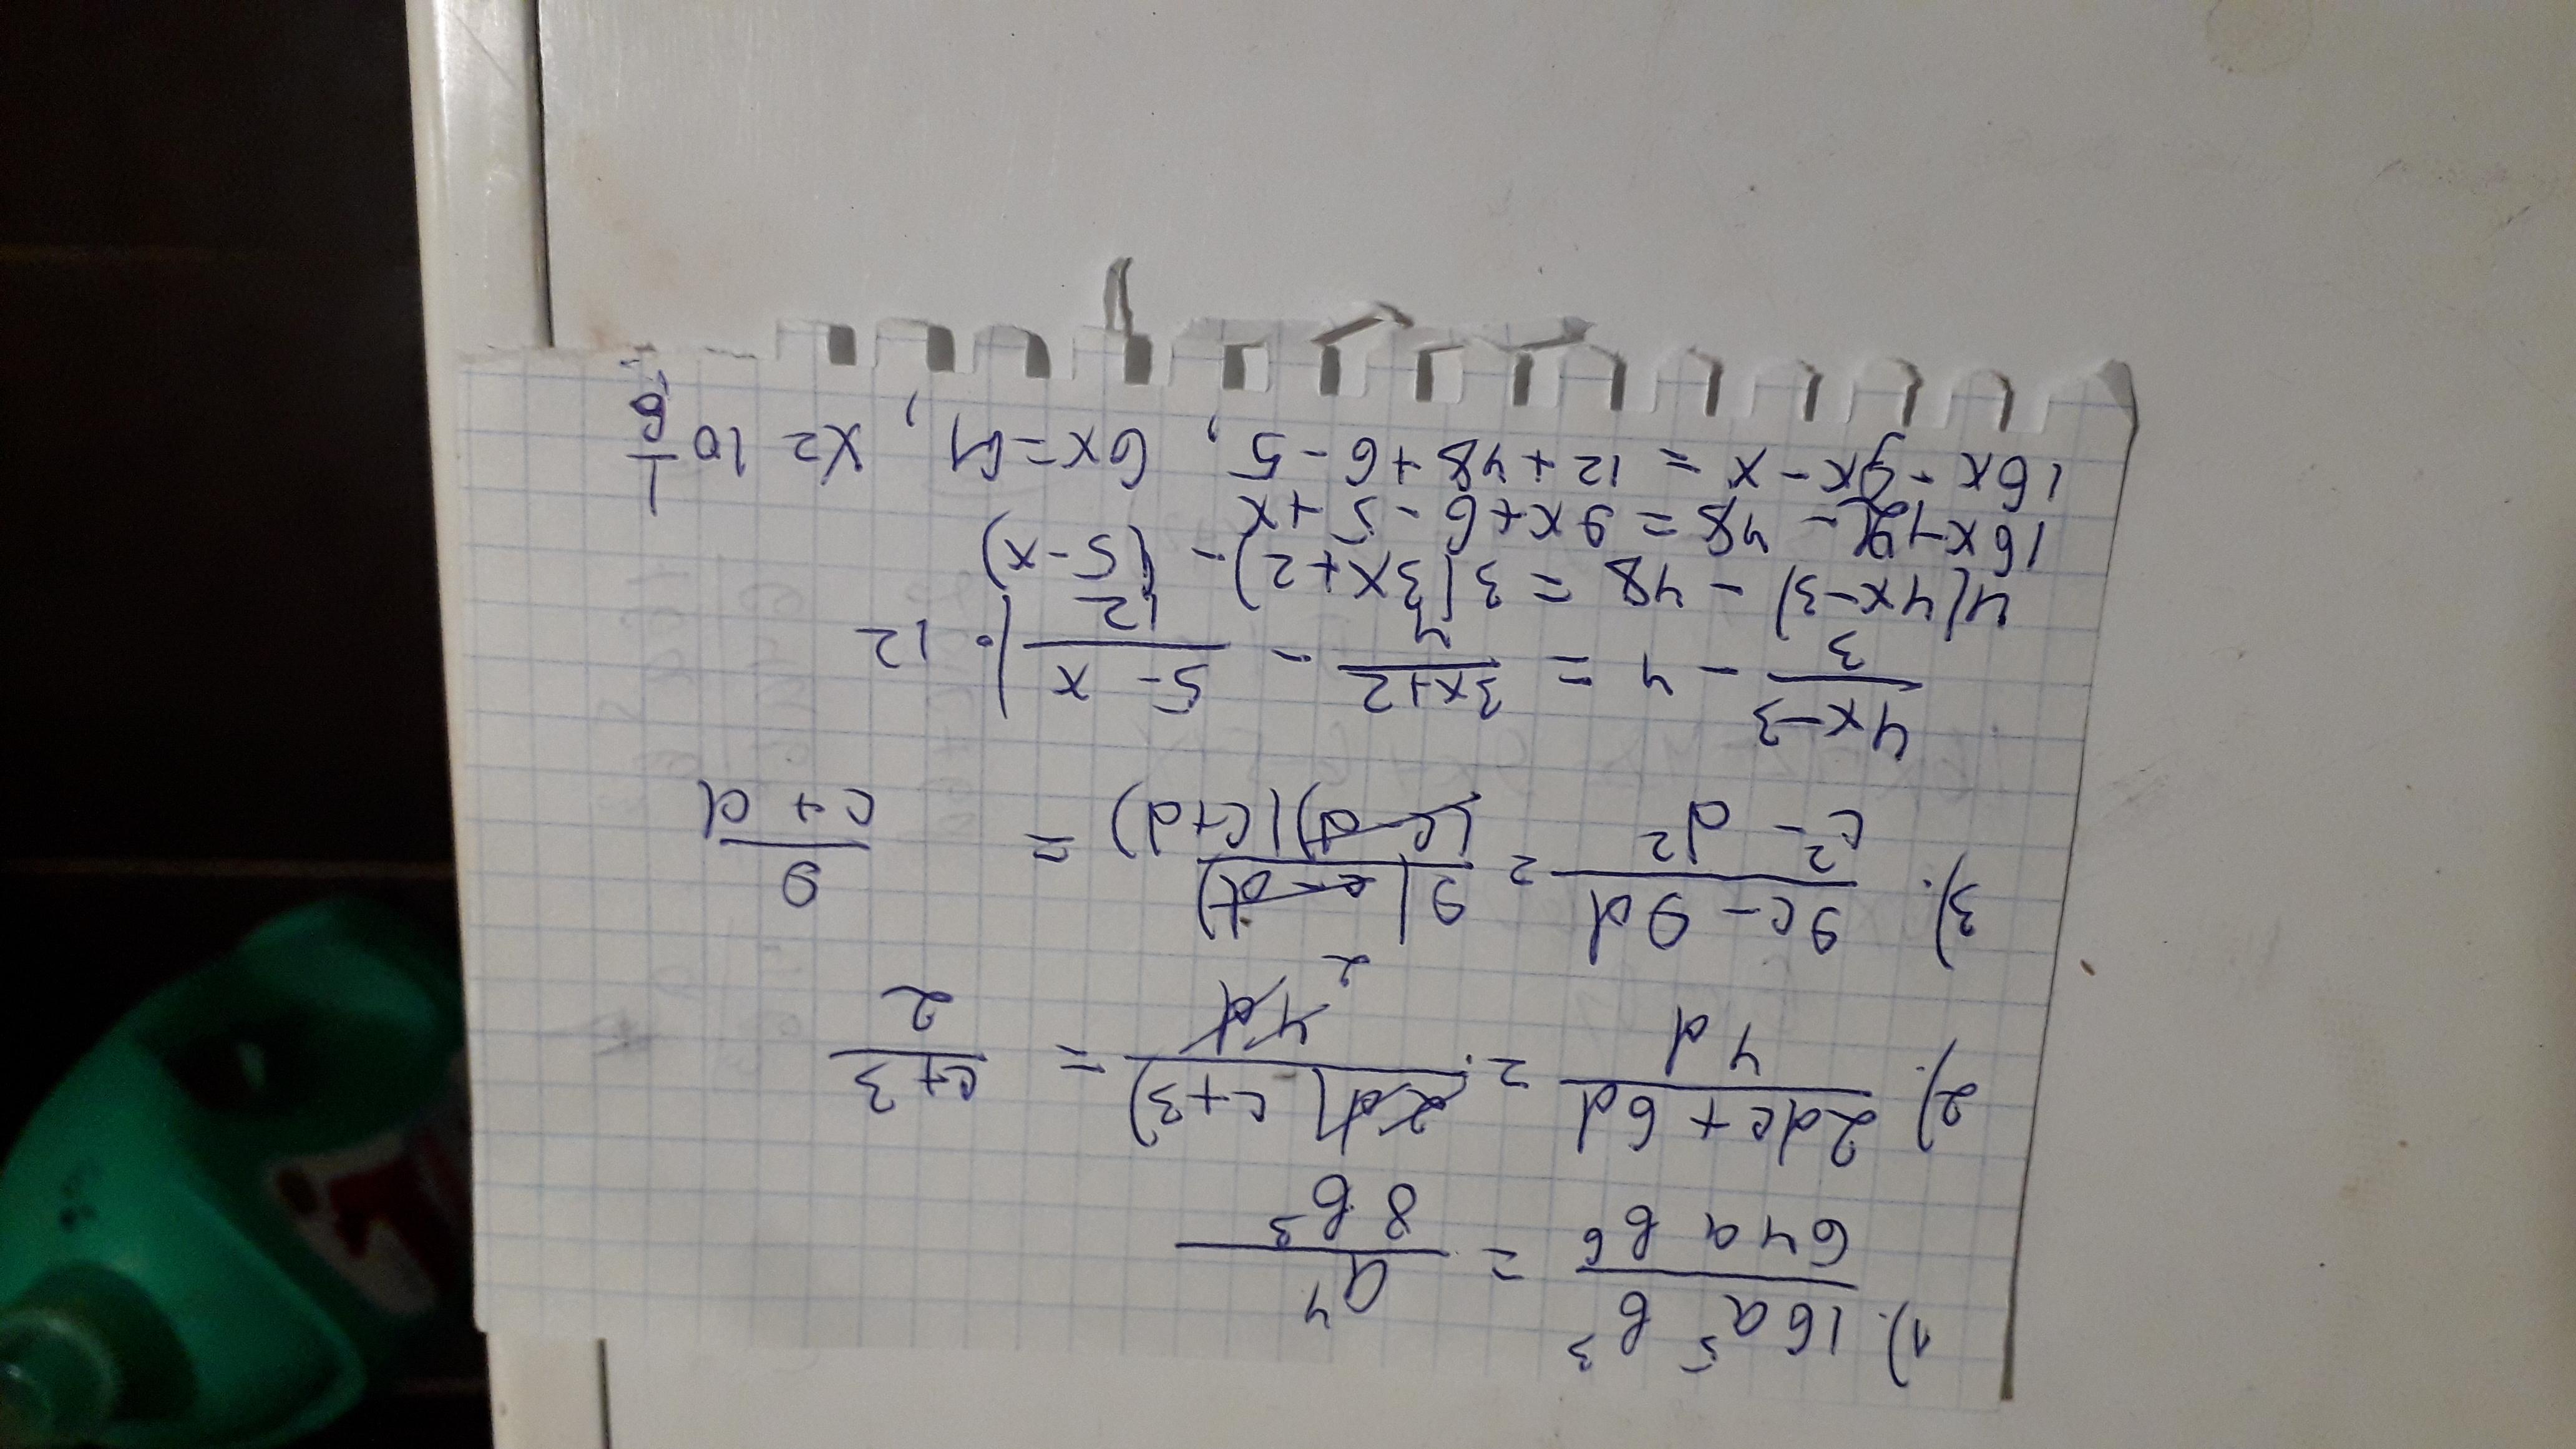 1). 16a⁵b³/64ab⁶ = a⁴/8b³
2). 2dc+6d/4d = 2d(c+3)/4d 2 = c+3/2
3). 9c-9d/c²-d² = 9(c-d)/(c-d)(c+d) = 9/c+d
4x-3/3 - 4 = 3x+2/4 - 5-x/12 | · 12
4(4x-3) - 48 = 3(3x+2) - (5-x)
16x-12 - 48 = 9x+6-5+x
16x-9x-x = 12+48+6-5, 6x=61, x=10 1/6